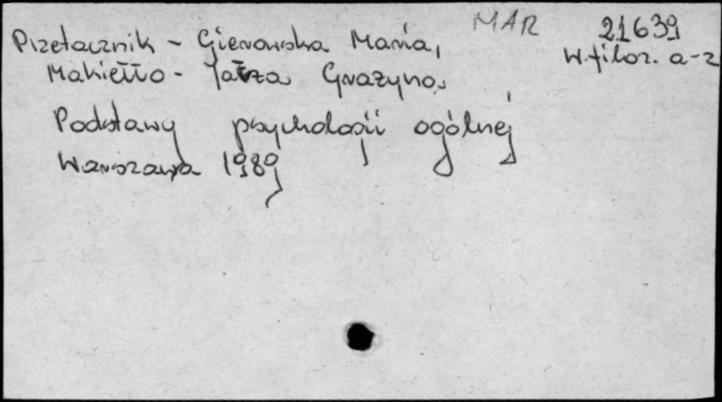 MAR 21639
Przetacznik - Gierowska Maria,
W. filoz. a-z
Makiełło - Jarża Grażyna
Podstawy psychologii ogólnej
Warszawa 1989